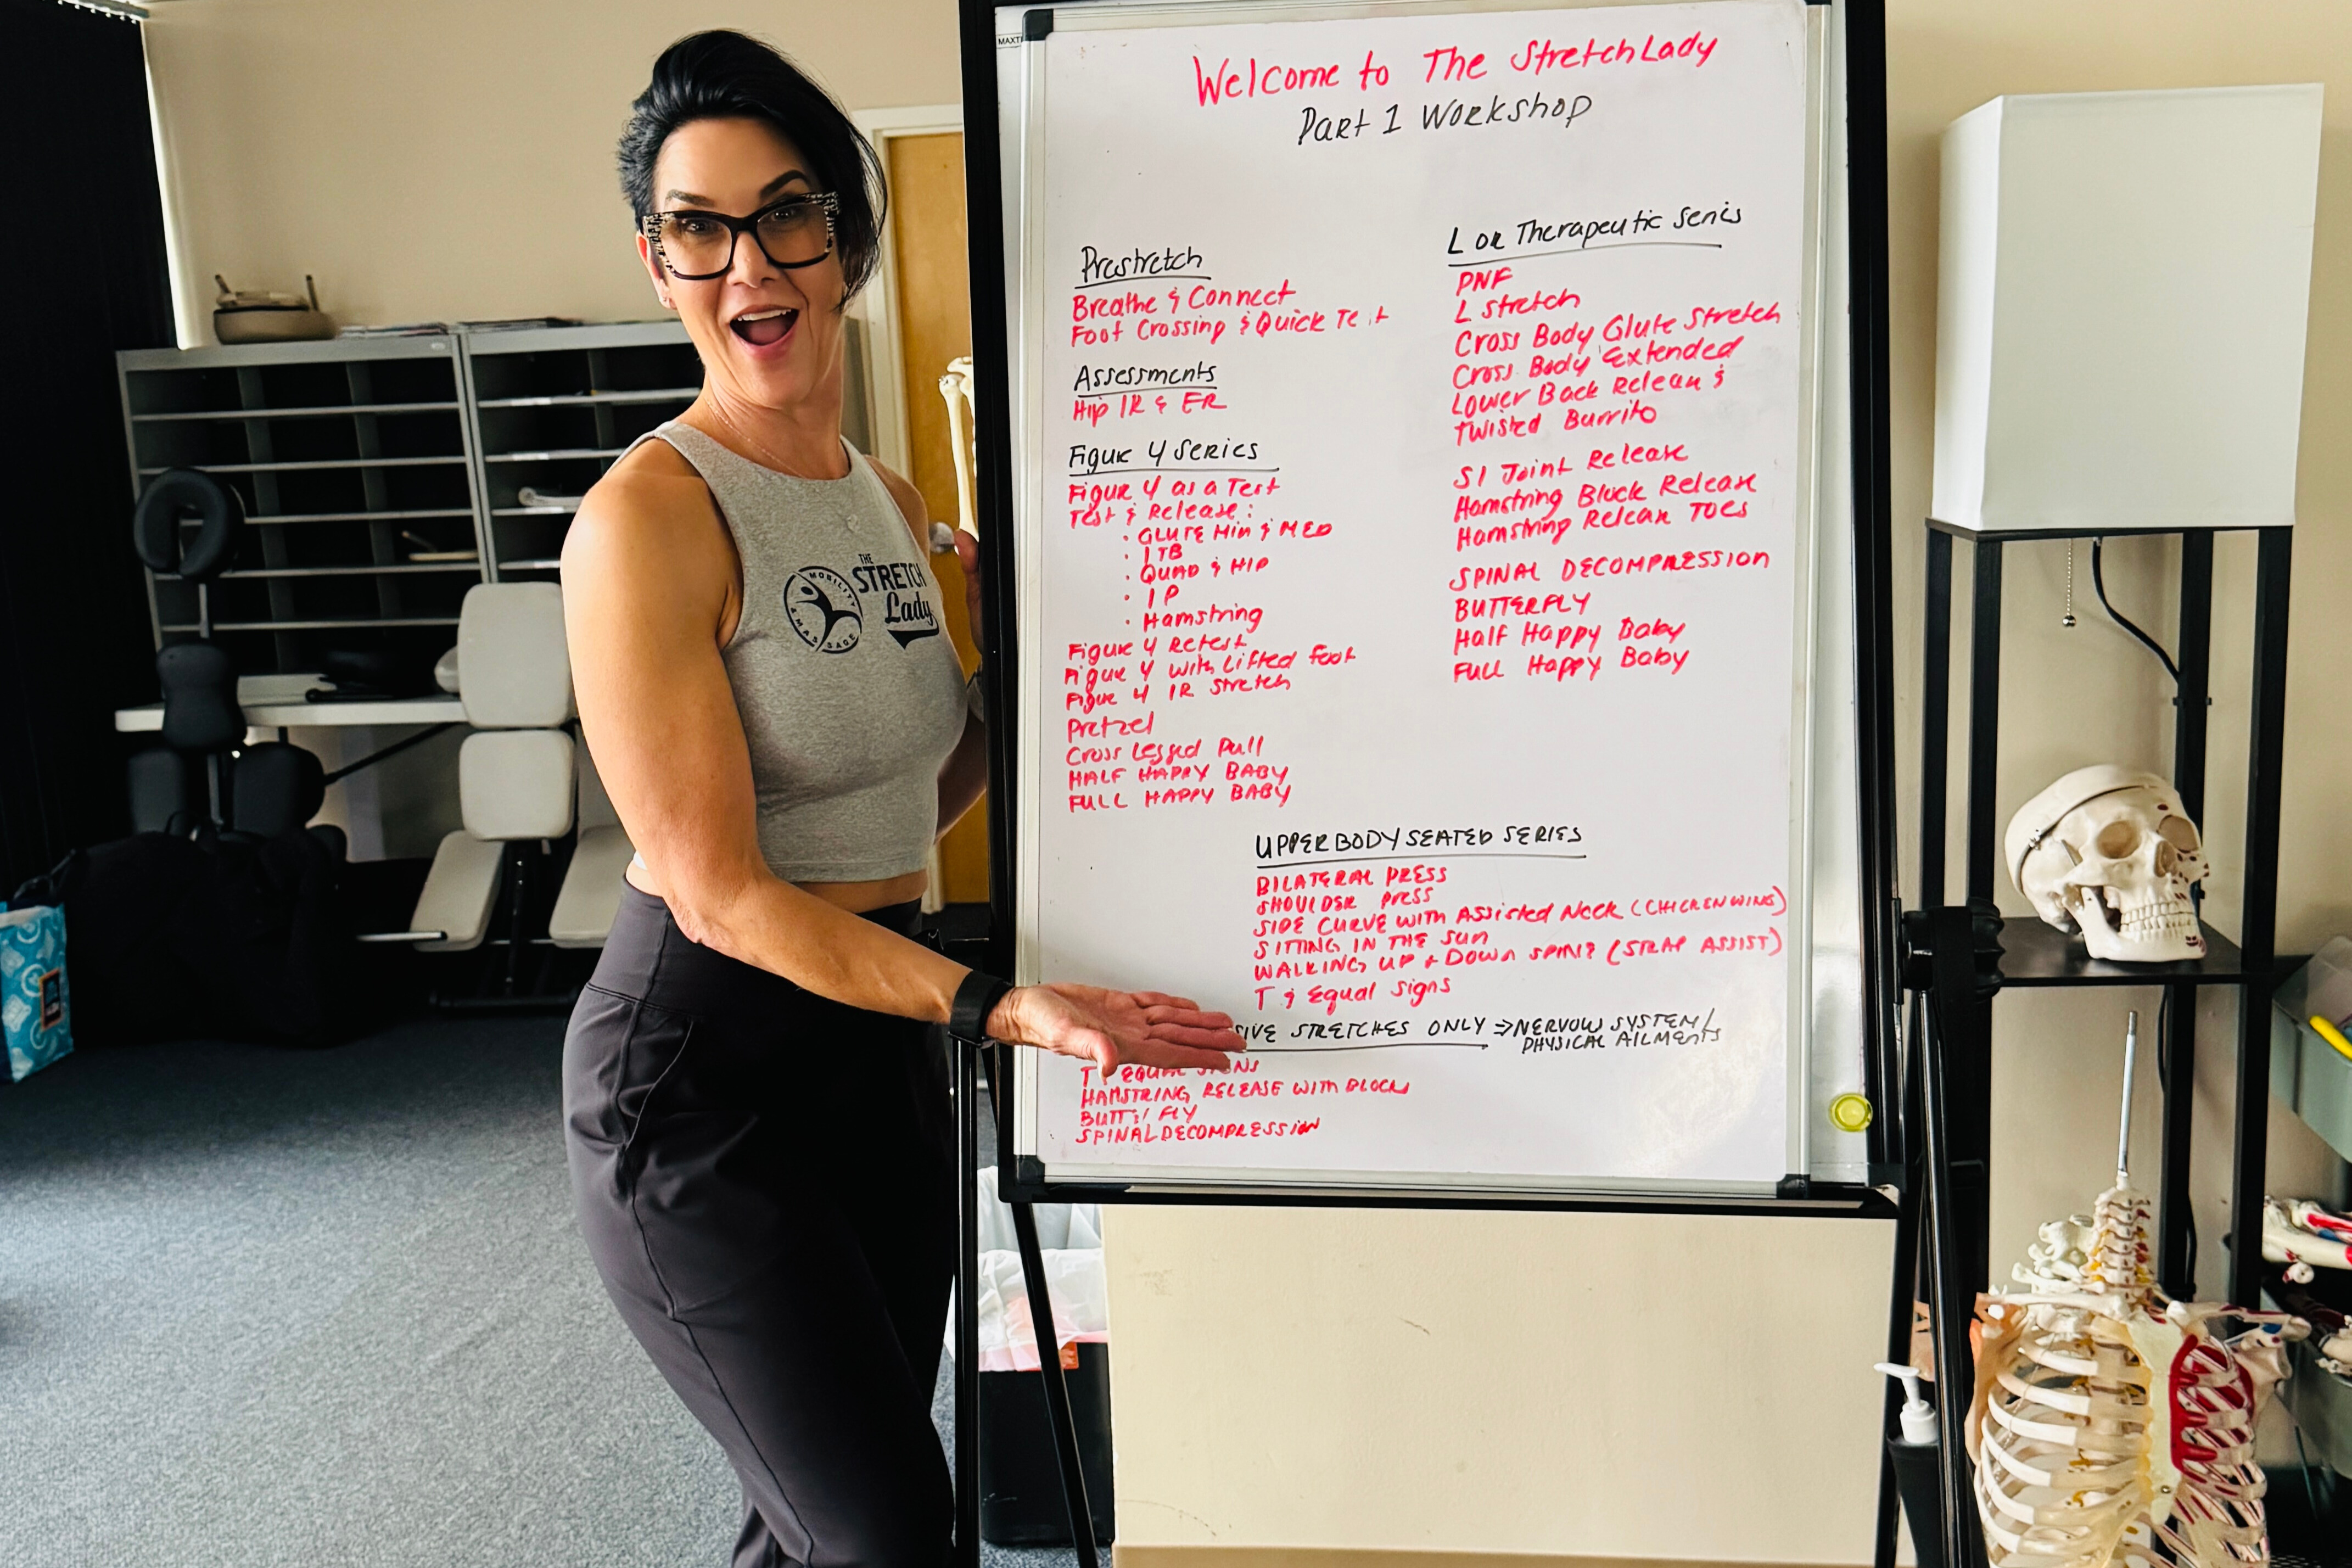 MAXT
Welcome to The StretchLady
Part 1 Workshop
Prestretch
Breathe & Connect
Foot Crossing & Quick Te t
Assessments
Hip IR & ER
Figure 4 Series
Figure 4 as a Test
Test & Release:
• GLUTE Min & MED
• ITB
• QUAD & HIP
• IP
• Hamstring
Figure 4 Retest
Figure 4 with Lifted foot
Figure 4 IR Stretch
Pretzel
Cross Legged Pull
HALF HAPPY BABY
FULL HAPPY BABY
L or Therapeutic Series
PNF
L Stretch
Cross Body Glute Stretch
Cross Body Extended
Lower Back Release &
Twisted Burrito
SI Joint Release
Hamstring Block Release
Hamstring Release TOES
SPINAL DECOMPRESSION
BUTTERFLY
Half Happy Baby
Full Happy Baby
UPPER BODY SEATED SERIES
BILATERAL PRESS
SHOULDER PRESS
SIDE CURVE WITH ASSISTED NECK (CHICKEN WING)
SITTING IN THE SUN
WALKING UP + DOWN SPINE (STRAP ASSIST)
T & Equal Signs
SIVE STRETCHES ONLY ⇒ NERVOUS SYSTEM/
PHYSICAL AILMENTS
T & EQUAL SIGNS
HAMSTRING RELEASE WITH BLOCK
BUTTERFLY
SPINAL DECOMPRESSION
THE
STRETCH
Lady
MOBILITY
& MASSAGE